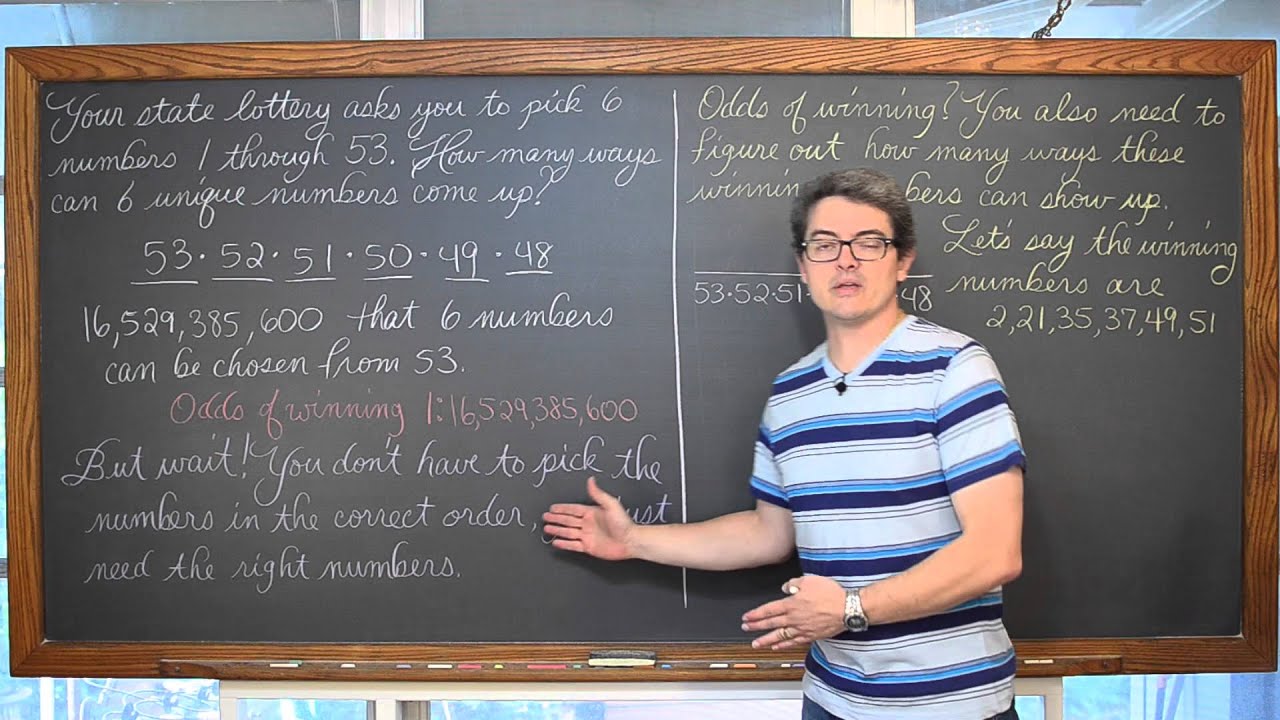 Your state lottery asks you to pick 6
numbers 1 through 53. How many ways
can 6 unique numbers come up?
53·52·51·50·49·48
16,529,385,600 that 6 numbers
can be chosen from 53.
Odds of winning 1:16,529,385,600
But wait! You don't have to pick the
numbers in the correct order,
need the right numbers.
Odds of winning? You also need to
figure out how many ways these
can show up.
Let's say the winning
numbers are
2,21,35,37,49,51
53·52·51· 48